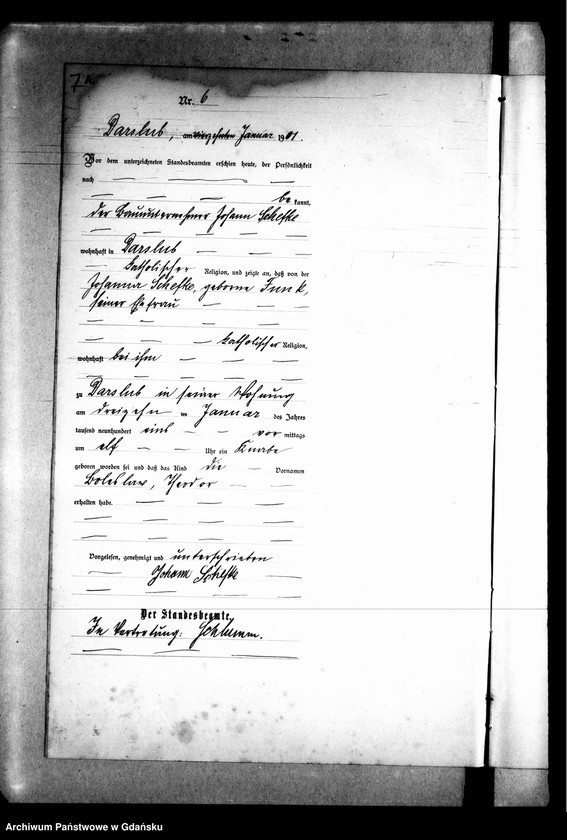 7 A.
Nr. 6
Darslub, am vierzehnten Januar 1901.
Vor dem unterzeichneten Standesbeamten erschien heute, der Persönlichkeit
nach
be kannt,
der Bauunternehmer Johann Schefke
wohnhaft in Darslub
katholischer Religion, und zeigte an, daß von der
Johanna Schefke, geborne Funk,
seiner Ehefrau
katholischer Religion,
wohnhaft bei ihm
zu Darslub in seiner Wohnung
am dreizehn ten Januar des Jahres
tausend neunhundert eins vor mittags
um elf Uhr ein Knabe
geboren worden sei und daß das Kind die Vornamen
Boleslaw, Theodor
erhalten habe.
Vorgelesen, genehmigt und unterschrieben
Johann Schefke
Der Standesbeamte.
In Vertretung:
Archiwum Państwowe w Gdańsku